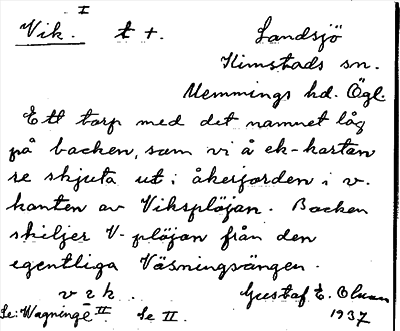 I
Vik. t +. Landsjö
Kimstads sn.
Memmings hd. Ögl.
Ett torp med det namnet låg
på backen, som vi å ek-kartan
se skjuta ut i åkerjorden i v.
kanten av Viksplöjan. Backen
skiljer V-plöjan från den
egentliga Väsningsängen.
v 2 k Gustaf E. Olsson
Se: Wagninge II Se II. 1937